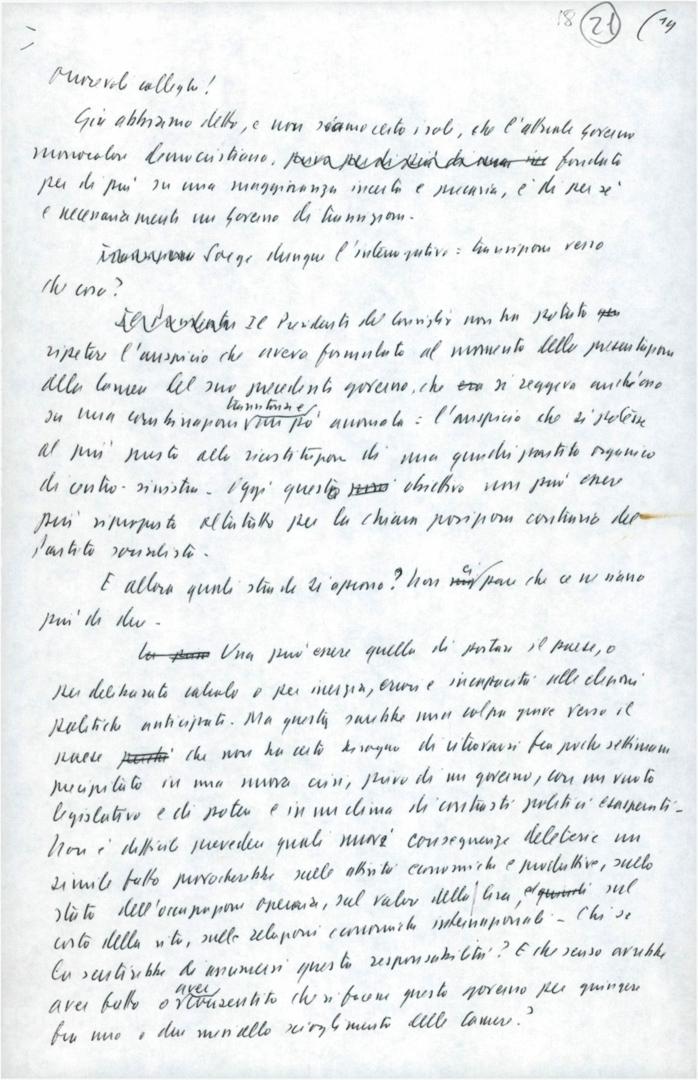 18 21 (19
Onorevoli colleghi!
Già abbiamo detto, e non siamo certo i soli, che l'attuale governo
monocolore democristiano, fondato
per di più su una maggioranza incerta e precaria, è di per sé
e necessariamente un governo di transizione.
Sorge dunque l'interrogativo: transizione verso
che cosa?
Il Presidente del Consiglio non ha potuto
ripetere l'auspicio che aveva formulato al momento della presentazione
alla Camera del suo precedente governo, che si reggeva anch'esso
su una combinazione transitoria e un po' anomala: l'auspicio che si potesse
al più presto alla ricostituzione di una quadripartito organico
di centro-sinistra. Oggi questo obiettivo non può essere
più riproposto altutto per la chiara posizione contraria del
partito socialista.
E allora quali strade si aprono? Non ci pare che ce ne siano
più di due.
Una può essere quella di portare il paese, o
per deliberato calcolo o per inerzia, errori e incapacità alle elezioni
politiche anticipate. Ma questa sarebbe una colpa grave verso il
paese che non ha certo bisogno di ritrovarsi fra poche settimane
precipitato in una nuova crisi, privo di un governo, con un vuoto
legislativo e di potere e in un clima di contrasti politici esasperati.
Non è difficile prevedere quali nuove conseguenze deleterie un
simile fatto provocherebbe sulle attività economiche e produttive, sullo
stato dell'occupazione operaia, sul valore della lira, sul
costo della vita, sulle relazioni economiche internazionali. Chi se
la sentirebbe di assumersi questa responsabilità? E che senso avrebbe
aver fatto o aver consentito che si facesse questo governo per giungere
fra uno o due mesi allo scioglimento delle Camere?